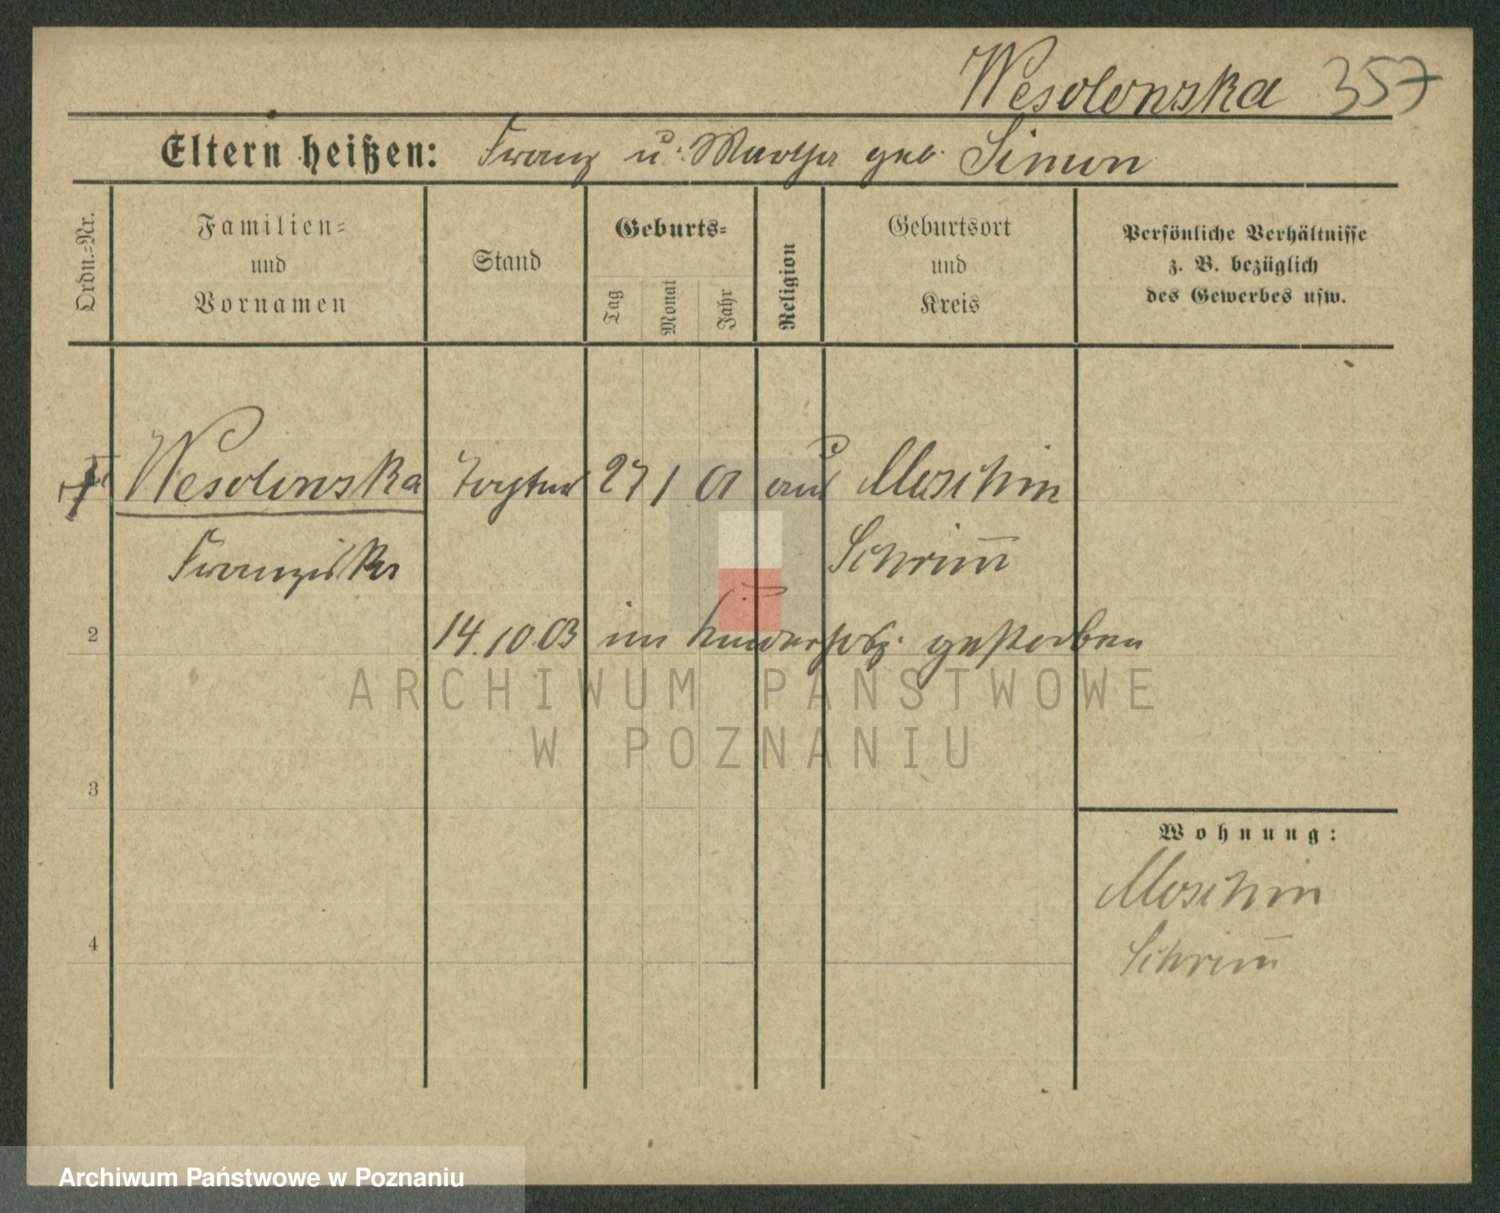 Wesolowska 357
Eltern heißen: Franz u. Martha geb. Simon
Ordn.=Nr.
Familien=
und
Vornamen
Stand
Geburts=
Tag
Monat
Jahr
Religion
Geburtsort
und
Kreis
Persönliche Verhältnisse
z. B. bezüglich
des Gewerbes usw.
Wesolowska Tochter 27 1 01 Moschin
Franziska Schrimm
2
14.10.03 im gestorben
ARCHIWUM PAŃSTWOWE
W POZNANIU
3
Wohnung:
Moschin
4
Schrimm
Archiwum Państwowe w Poznaniu